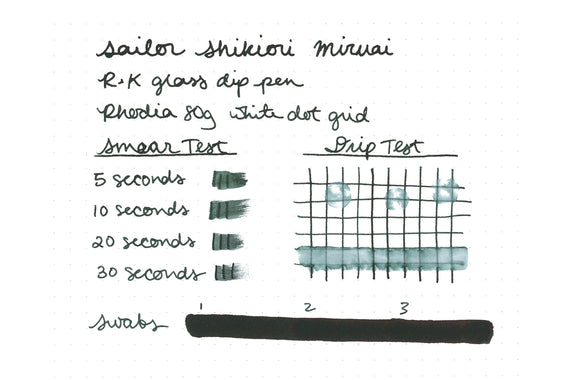 Sailor Shikiori Miruai
R+K glass dip pen
Rhodia 80g white dot grid
Smear Test
5 seconds
10 seconds
20 seconds
30 seconds
Drip Test
1 2 3
Swabs